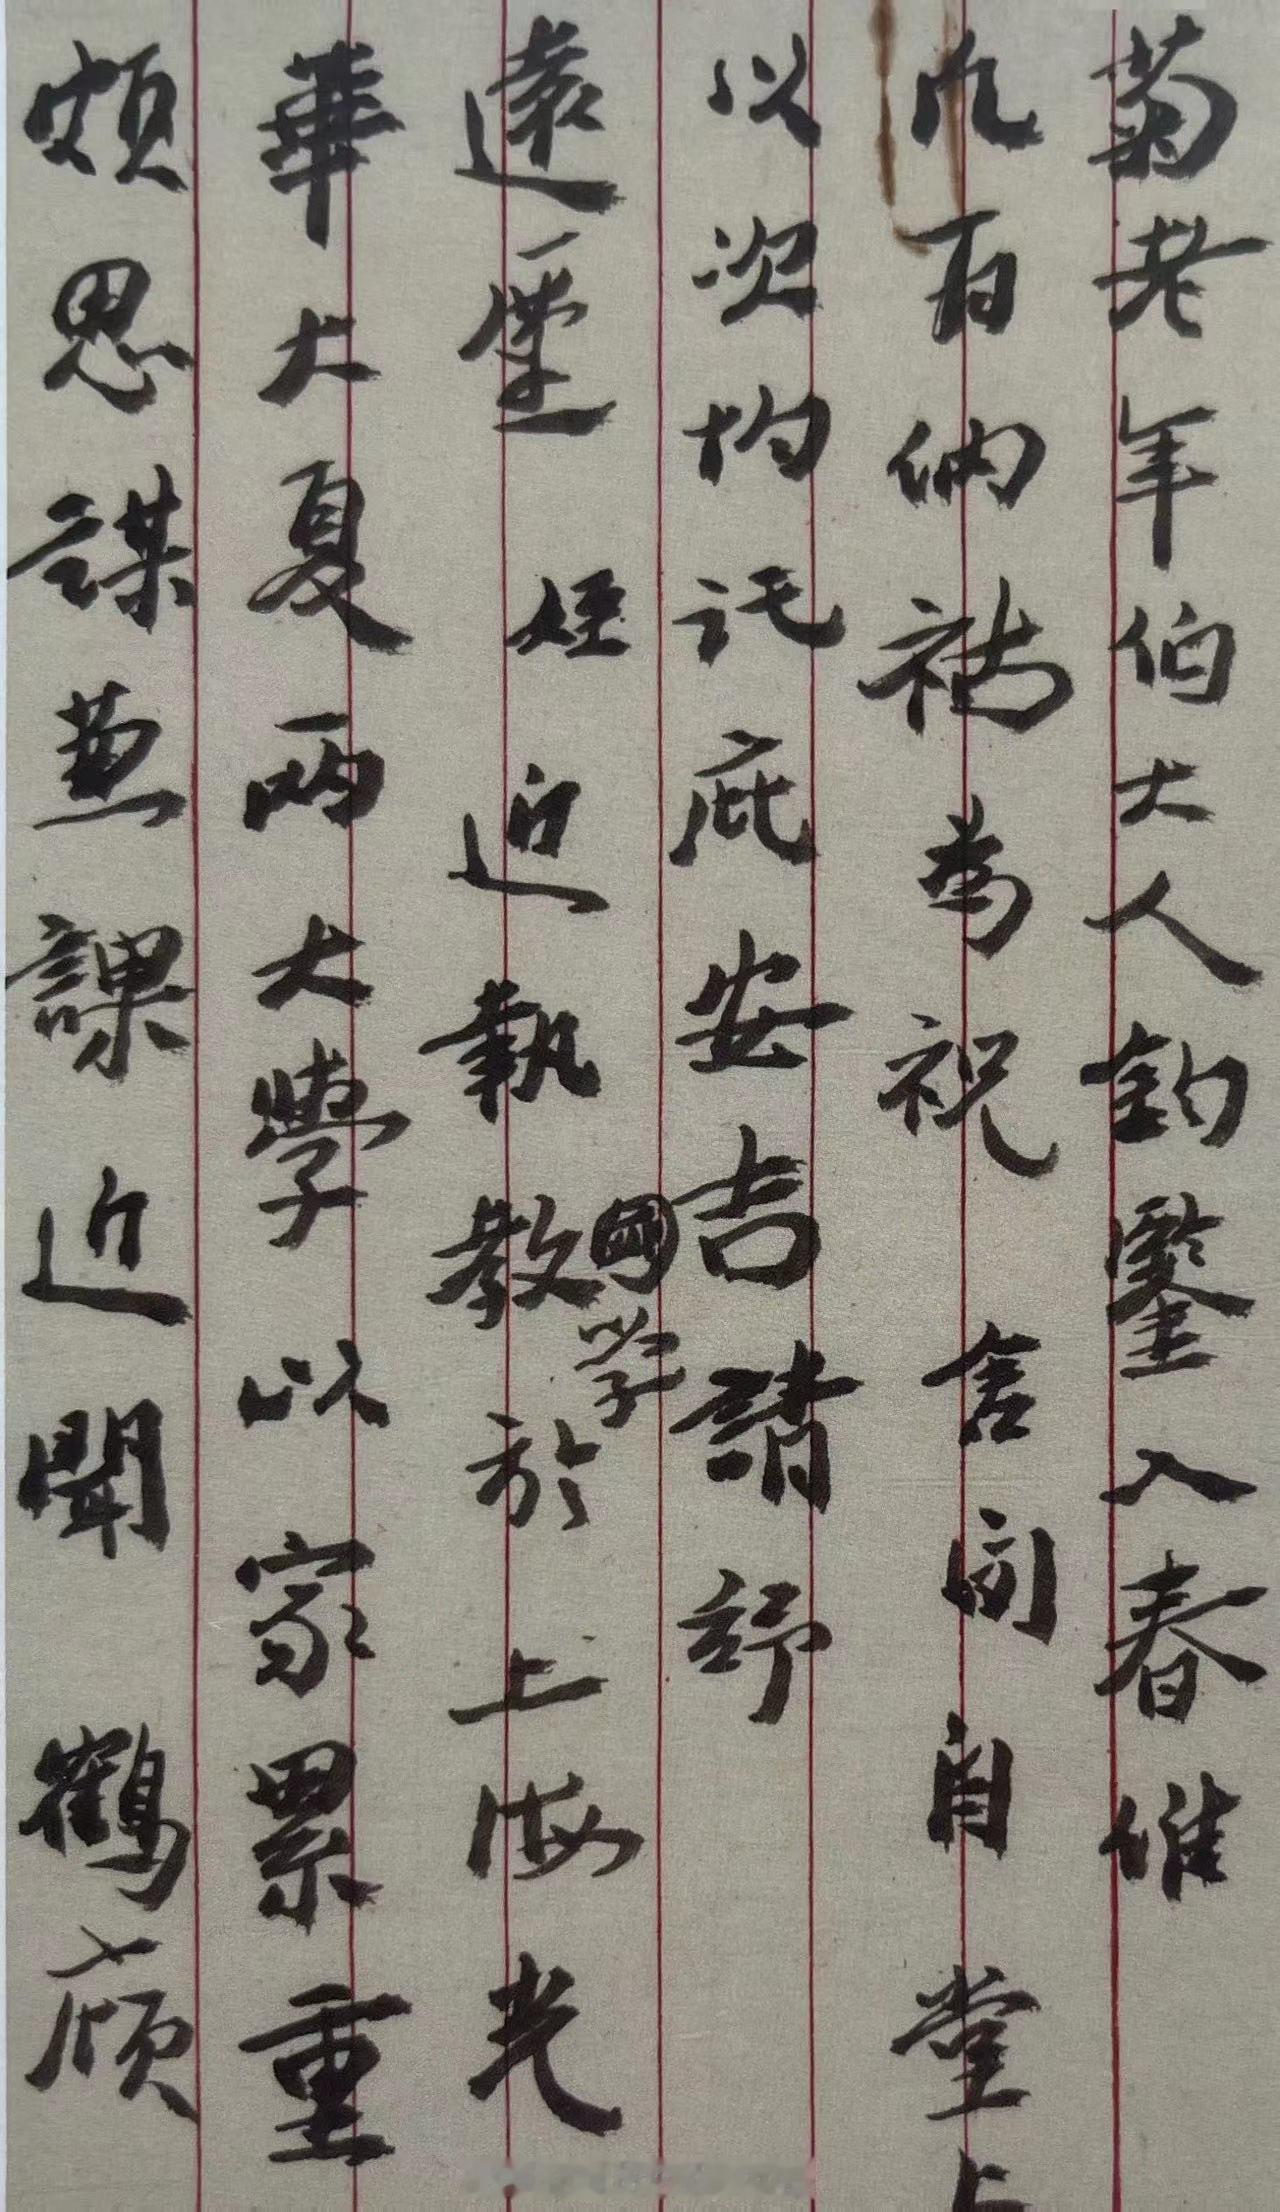 菊老年伯大人鈞鑒入春維
凡百納福為祝舍間自堂上
以次均託庇安吉請紓
遠廑姪近執教國学於上海光
華大夏兩大學以家累重
頗思謀兼課近聞鶴廎